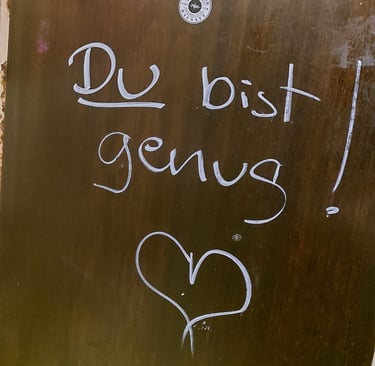 Du bist
genug!